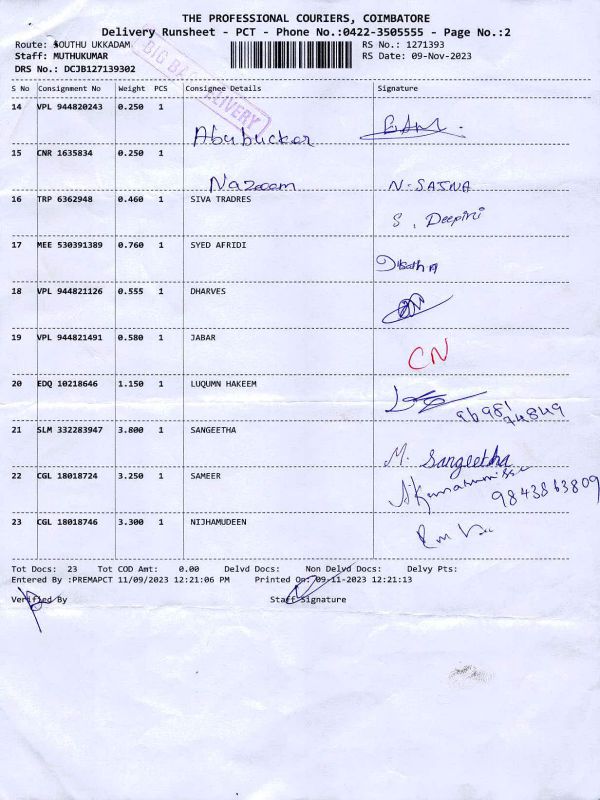 THE PROFESSIONAL COURIERS, COIMBATORE
Delivery Runsheet - PCT - Phone No.:0422-3505555 - Page No.:2
Route: SOUTHU UKKADAM RS No.: 1271393
Staff: MUTHUKUMAR RS Date: 09-Nov-2023
DRS No.: DCJB127139302
BIG BAG DELIVERY
S No Consignment No Weight PCS Consignee Details Signature
14 VPL 944820243 0.250 1
Abubucker
15 CNR 1635834 0.250 1
Nazeem N. SAJNA
16 TRP 6362948 0.460 1 SIVA TRADRES
S. Deepini
17 MEE 530391389 0.760 1 SYED AFRIDI
18 VPL 944821126 0.555 1 DHARVES
19 VPL 944821491 0.580 1 JABAR
CN
20 EDQ 10218646 1.150 1 LUQUMN HAKEEM
96981
74849
21 SLM 332283947 3.800 1 SANGEETHA
M. Sangeetha
22 CGL 18018724 3.250 1 SAMEER
9843863809
23 CGL 18018746 3.300 1 NIJHAMUDEEN
Tot Docs: 23 Tot COD Amt: 0.00 Delvd Docs: Non Delvd Docs: Delvy Pts:
Entered By :PREMAPCT 11/09/2023 12:21:06 PM Printed On: 09-11-2023 12:21:13
Verified By Staff Signature